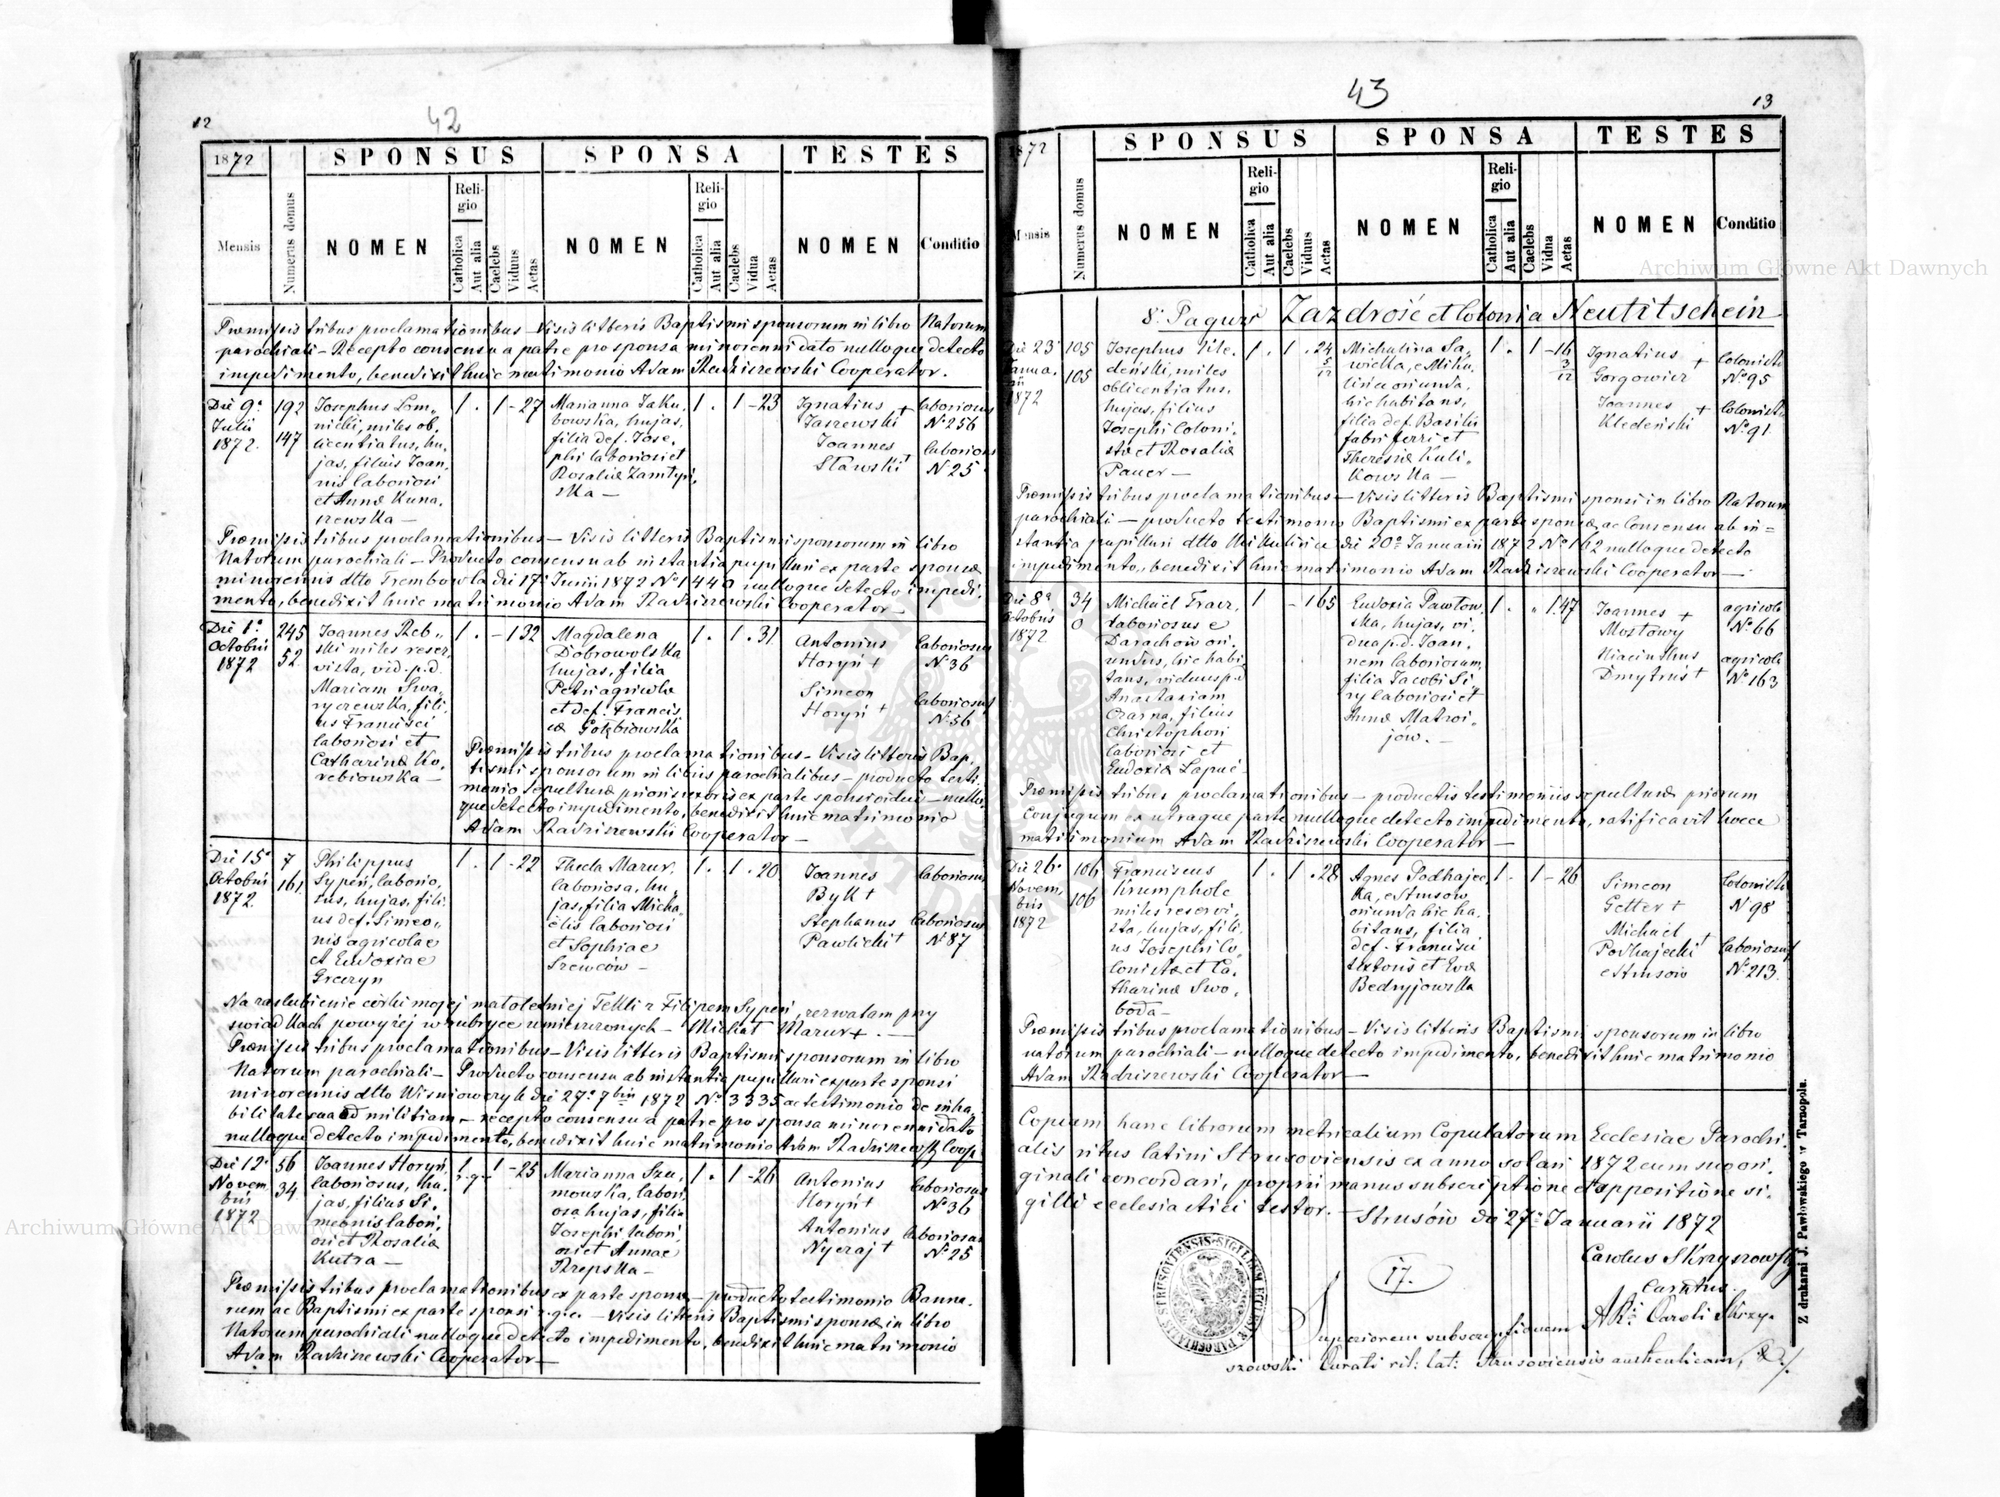 12
42
1872
SPONSUS
SPONSA
TESTES
Mensis
Numerus domus
NOMEN
Religio
Catholica
Aut alia
Caelebs
Viduus
Aetas
NOMEN
Religio
Catholica
Aut alia
Caelebs
Vidua
Aetas
NOMEN
Conditio
Præmissis tribus proclamationibus – Visis litteris Baptismi sponsorum in libro Natorum
parochiali – Recepto consensu a patre pro sponsa minorenni dato nulloque detecto
impedimento, benedixit huic matrimonio Adam Radziszewski Cooperator.
Die 9ª
Julii
1872.
192
147
Josephus Łom-
nicki, miles ob-
licentiatus, hu-
jas, filius Joan-
nis laboriosi
et Annæ Kuna-
szewska –
1 . 1 - 27
Marianna Jaku-
bowska, hujas,
filia def. Jose-
phi laboriosi et
Rosaliæ Zamłyń-
ska –
1 . 1 - 23
Ignatius +
Jaszewski
Joannes
Sławski +
laboriosus
Nº 256
laboriosus
Nº 25
Præmissis tribus proclamationibus – Visis litteris Baptismi sponsorum in libro
Natorum parochiali – Producto consensu ab instantia pupillari ex parte sponsæ
minorennis dtto Trembowla die 17ª Junii 1872 Nº 1440 nulloque detecto impedi-
mento, benedixit huic matrimonio Adam Radziszewski Cooperator –
Die 1ª
Octobris
1872
245
52
Joannes Reb-
ski miles reser-
vista, vid. p.d.
Mariam Swa-
ryczewska, fili-
us Francisci
laboriosi et
Catharinæ Ko-
rebiowska –
1 . - 1 32
Magdalena
Dobrowolska
hujas, filia
Petri agricolæ
et def. Francis-
cæ Gołębiowska
1 . 1 . 31
Antonius
Horyń +
Simeon
Horyń +
laboriosus
Nº 36
laboriosus
Nº 56
Præmissis tribus proclamationibus – Visis litteris Bap-
tismi sponsorum in libris parochialibus – producto testi-
monio sepulturæ prioris uxoris ex parte sponsi vidui – nullo-
que detecto impedimento, benedixit huic matrimonio
Adam Radziszewski Cooperator –
Die 15ª
Octobris
1872
7
161
Philippus
Sypeń, laborio-
sus, hujas, fili-
us def. Simeo-
nis agricolae
et Eudoxiae
Greczyn
1 . 1 - 22
Thecla Mazur,
laboriosa, hu-
jas, filia Micha-
ëlis laboriosi
et Sophiae
Szewców –
1 . 1 . 20
Joannes
Byk +
Stephanus
Pawlicki +
laboriosus
laboriosus
Nº 87
Na zaślubienie córki mojej małoletniej Tekli z Filipem Sypeń, zezwalam przy
świadkach powyżej w rubryce umieszczonych – Michał Mazur + . –
Præmissis tribus proclamationibus – Visis litteris Baptismi sponsorum in libro
Natorum parochiali – Producto consensu ab instantia pupillari ex parte sponsi
minorennis dtto Wiśniowczyk die 27ª 7bris 1872 Nº 3335 ac testimonio de inha-
bilitate sua ad militiam – recepto consensu a patre pro sponsa minorenni dato
nulloque detecto impedimento, benedixit huic matrimonio Adam Radziszewski Coop
Die 12ª
Novem
bris
1872
56
34
Joannes Horyń,
laboriosus, hu-
jas, filius Si-
meonis labori-
osi et Rosaliæ
Kutra –
1 1 - 25
r.g.
Marianna Szu-
mowska, labori-
osa hujas, filia
Josephi labori-
osi et Annae
Rzepska –
1 . 1 - 26
Antonius
Horyń +
Antonius
Nyczaj +
laboriosus
Nº 36
laboriosus
Nº 25
Præmissis tribus proclamationibus ex parte sponsæ – producto testimonio Banno-
rum ac Baptismi ex parte sponsi r.g.c. – Visis litteris Baptismi sponsæ in libro
Natorum parochiali nulloque detecto impedimento, benedixit huic matrimonio
Adam Radziszewski Cooperator –
43
13
1872
SPONSUS
SPONSA
TESTES
Mensis
Numerus domus
NOMEN
Religio
Catholica
Aut alia
Caelebs
Viduus
Aetas
NOMEN
Religio
Catholica
Aut alia
Caelebs
Vidua
Aetas
NOMEN
Conditio
8º Pagus Zazdrość et Colonia Neutitschein
Die 23ª
Janua-
rii
1872
105
105
Josephus Kle-
deński, miles
oblicentiatus,
hujas, filius
Josephi Coloni-
stæ et Rosaliæ
Pauer –
1 . 1 . 24 5/12
Michalina Sa-
wicka, e Miku-
lińce oriunda,
hic habitans,
filia def. Basilii
fabri ferri et
Theresiæ Kuli-
kowska –
1 . 1 - 16 3/12
Ignatius +
Gorgowicz
Joannes +
Kledeński
Colonista
Nº 95
Colonista
Nº 91
Præmissis tribus proclamationibus – Visis litteris Baptismi sponsi in libro Natorum
parochiali – producto testimonio Baptismi ex parte sponsæ ac Consensu ab in=
stantia pupillari dtto Mikulińce die 20ª Januarii 1872 Nº 162 nulloque detecto
impedimento, benedixit huic matrimonio Adam Radziszewski Cooperator –
Die 8ª
Octobris
1872
34
0
Michaël Fracz,
laboriosus e
Darachów ori-
undus, hic habi-
tans, viduus p.d
Anastasiam
Czarna, filius
Christophori
laboriosi et
Eudoxiæ Łapuć –
1 - 1 65
Eudoxia Pawłow-
ska, hujas, vi-
dua p.d. Joan-
nem laboriosum,
filia Jacobi Si-
ry laboriosi et
Annæ Matwi-
jów. –
1 . „ 1 47
Joannes +
Mostowy
Hiacinthus
Dmytruś +
agricola
Nº 66
agricola
Nº 163
Præmissis tribus proclamationibus – productis testimoniis sepulturæ priorum
Conjugum ex utraque parte nulloque detecto impedimento, ratificavit hocce
matrimonium Adam Radziszewski Cooperator –
Die 26ª
Novem
bris
1872
106
106
Franciscus
Krumphole
miles reservi-
sta, hujas, fili-
us Josephi Co-
lonistæ et Ca-
tharinæ Swo-
boda –
1 . 1 . 28
Agnes Podhajec-
ka, e Strusów
oriunda hic ha-
bitans, filia
def. Francisci
textoris et Evæ
Bedryjowska
1 . 1 - 26
Simeon
Getter +
Michaël
Podhajecki +
e Strusów
Colonista
Nº 98
laboriosus
Nº 213
Præmissis tribus proclamationibus – Visis litteris Baptismi sponsorum in libro
natorum parochiali – nulloque detecto impedimento, benedixit huic matrimonio
Adam Radziszewski Cooperator –
Copiam hanc librorum metricalium Copulatorum Ecclesiae Parochi-
alis ritus latini Strusoviensis ex anno solari 1872 cum suo ori-
ginali concordari, proprii manus subscriptione et appositione si-
gilli ecclesiastici testor. – Strusów die 27ª Januarii 1872
Carolus Skrzyszowski
Curatus.
17.
Superiorem subscriptionem ARi Caroli Skrzy-
szowski Curati rit: lat: Strusoviensis authenticam,
Z drukarni J. Pawłowskiego w Tarnopolu.
Archiwum Główne Akt Dawnych
Archiwum Główne Akt Dawnych